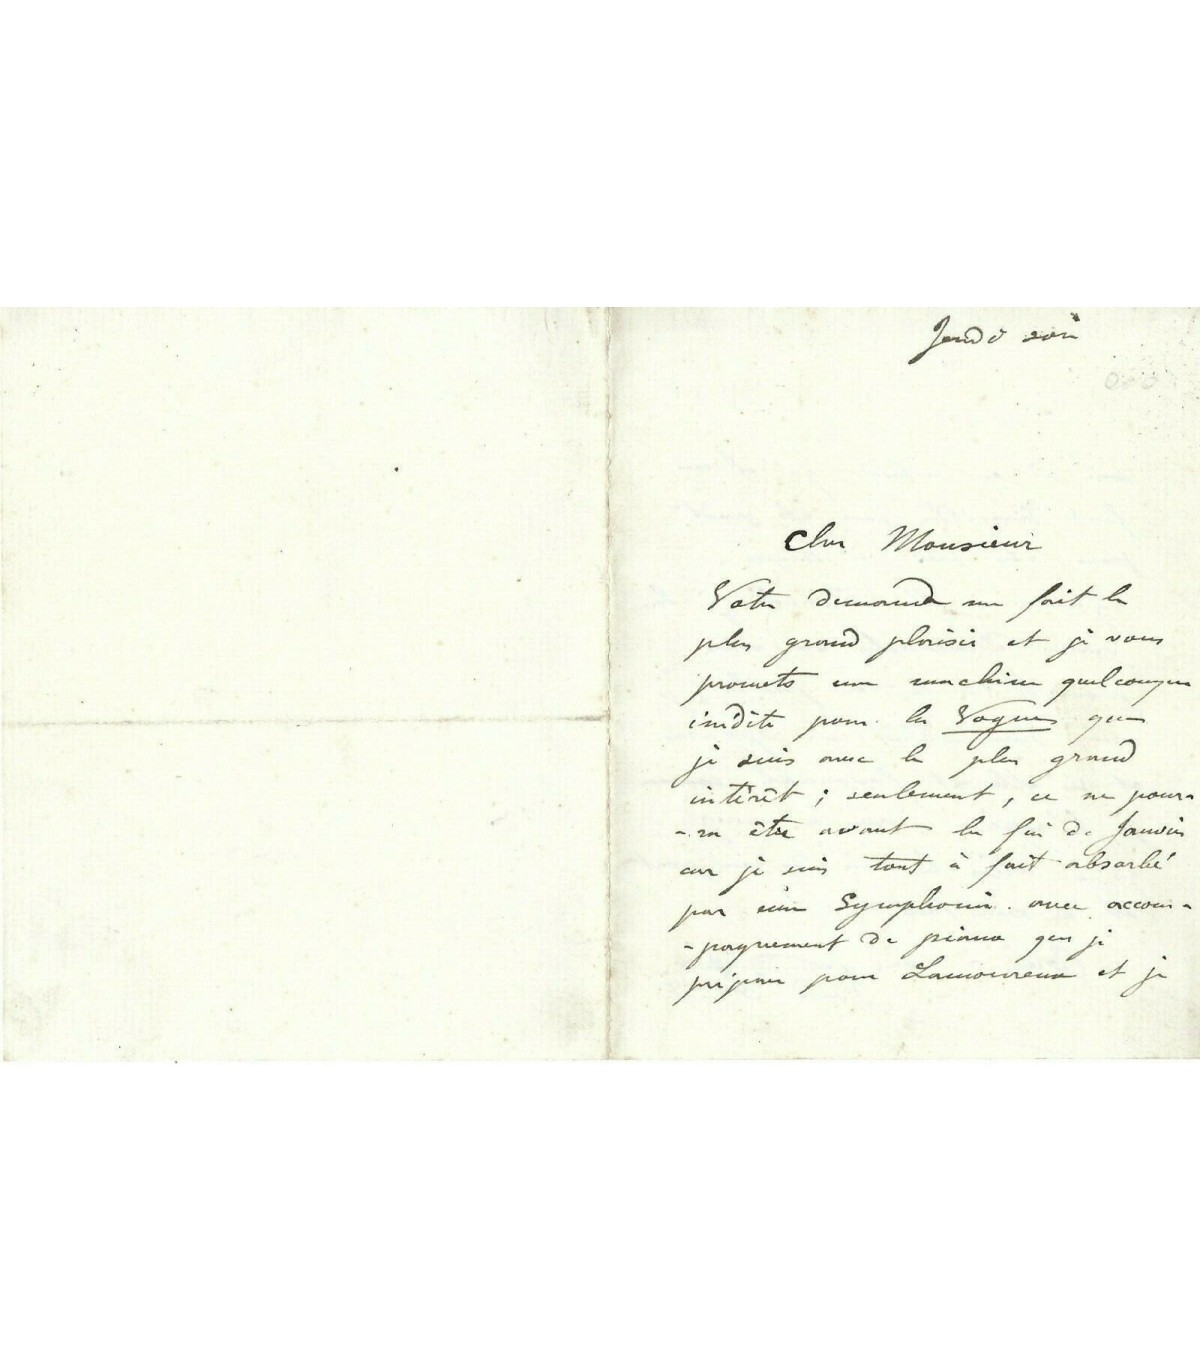 Jeudi soir
Cher Monsieur
Votre demande me fait le
plus grand plaisir et je vous
promets une machine quelconque
inédite pour la Vogue que
je suis avec le plus grand
intérêt ; seulement, ce ne pour-
-ra être avant la fin de Janvier
car je suis tout à fait absorbé
par une Symphonie avec accom-
-pagnement de piano que je
prépare pour Lamoureux et je